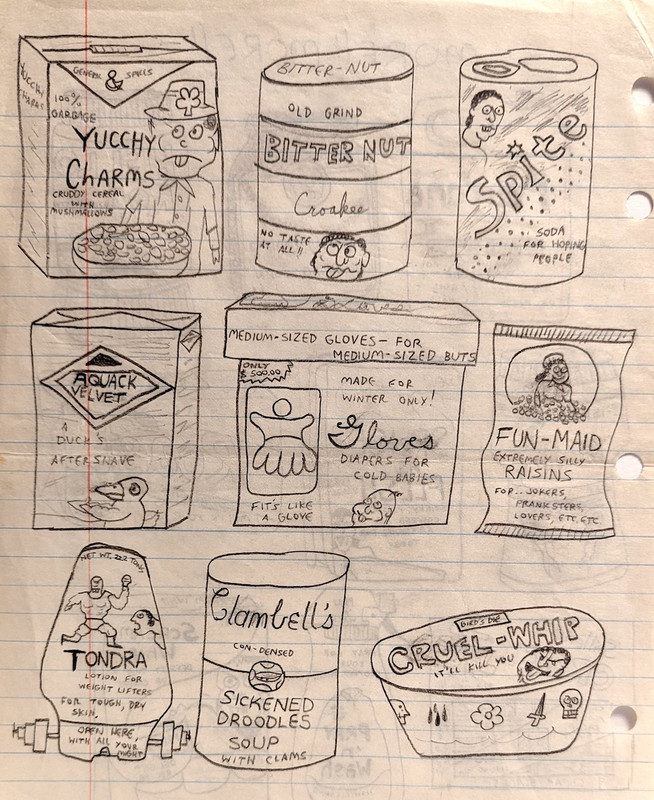 GENERAL & SPILLS
YUCCHY
CHARMS
100%
GARBAGE
YUCCHY
CHARMS
CRUDDY CEREAL
WITH
MUSHMALLOWS
BITTER-NUT
OLD GRIND
BITTER NUT
Croakee
NO TASTE
AT ALL!!
Spite
SODA
FOR HOPING
PEOPLE
AQUACK
VELVET
A
DUCK'S
AFTERSHAVE
Gloves
MEDIUM-SIZED GLOVES- FOR
MEDIUM-SIZED BUTS
ONLY
$500.00
MADE FOR
WINTER ONLY!
Gloves
DIAPERS FOR
COLD BABIES
FITS LIKE
A GLOVE
FUN-MAID
EXTREMELY SILLY
RAISINS
FOR.. JOKERS,
PRANKSTERS,
LOVERS, ETC. ETC.
NET WT. 222 TONS
TONDRA
LOTION FOR
WEIGHT LIFTERS
FOR TOUGH, DRY
SKIN.
OPEN HERE,
WITH ALL YOUR
MIGHT
Clambell's
CON-DENSED
SICKENED
DROODLES
SOUP
WITH CLAMS
BIRD'S DIE
CRUEL-WHIP
IT'LL KILL YOU